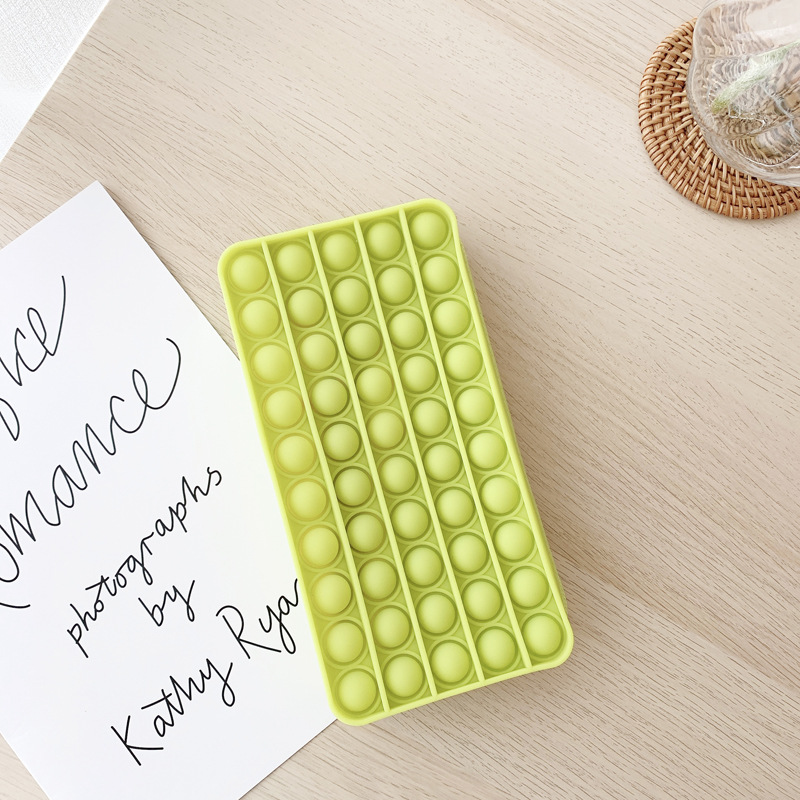 omance
photographs
by
Kathy Rya